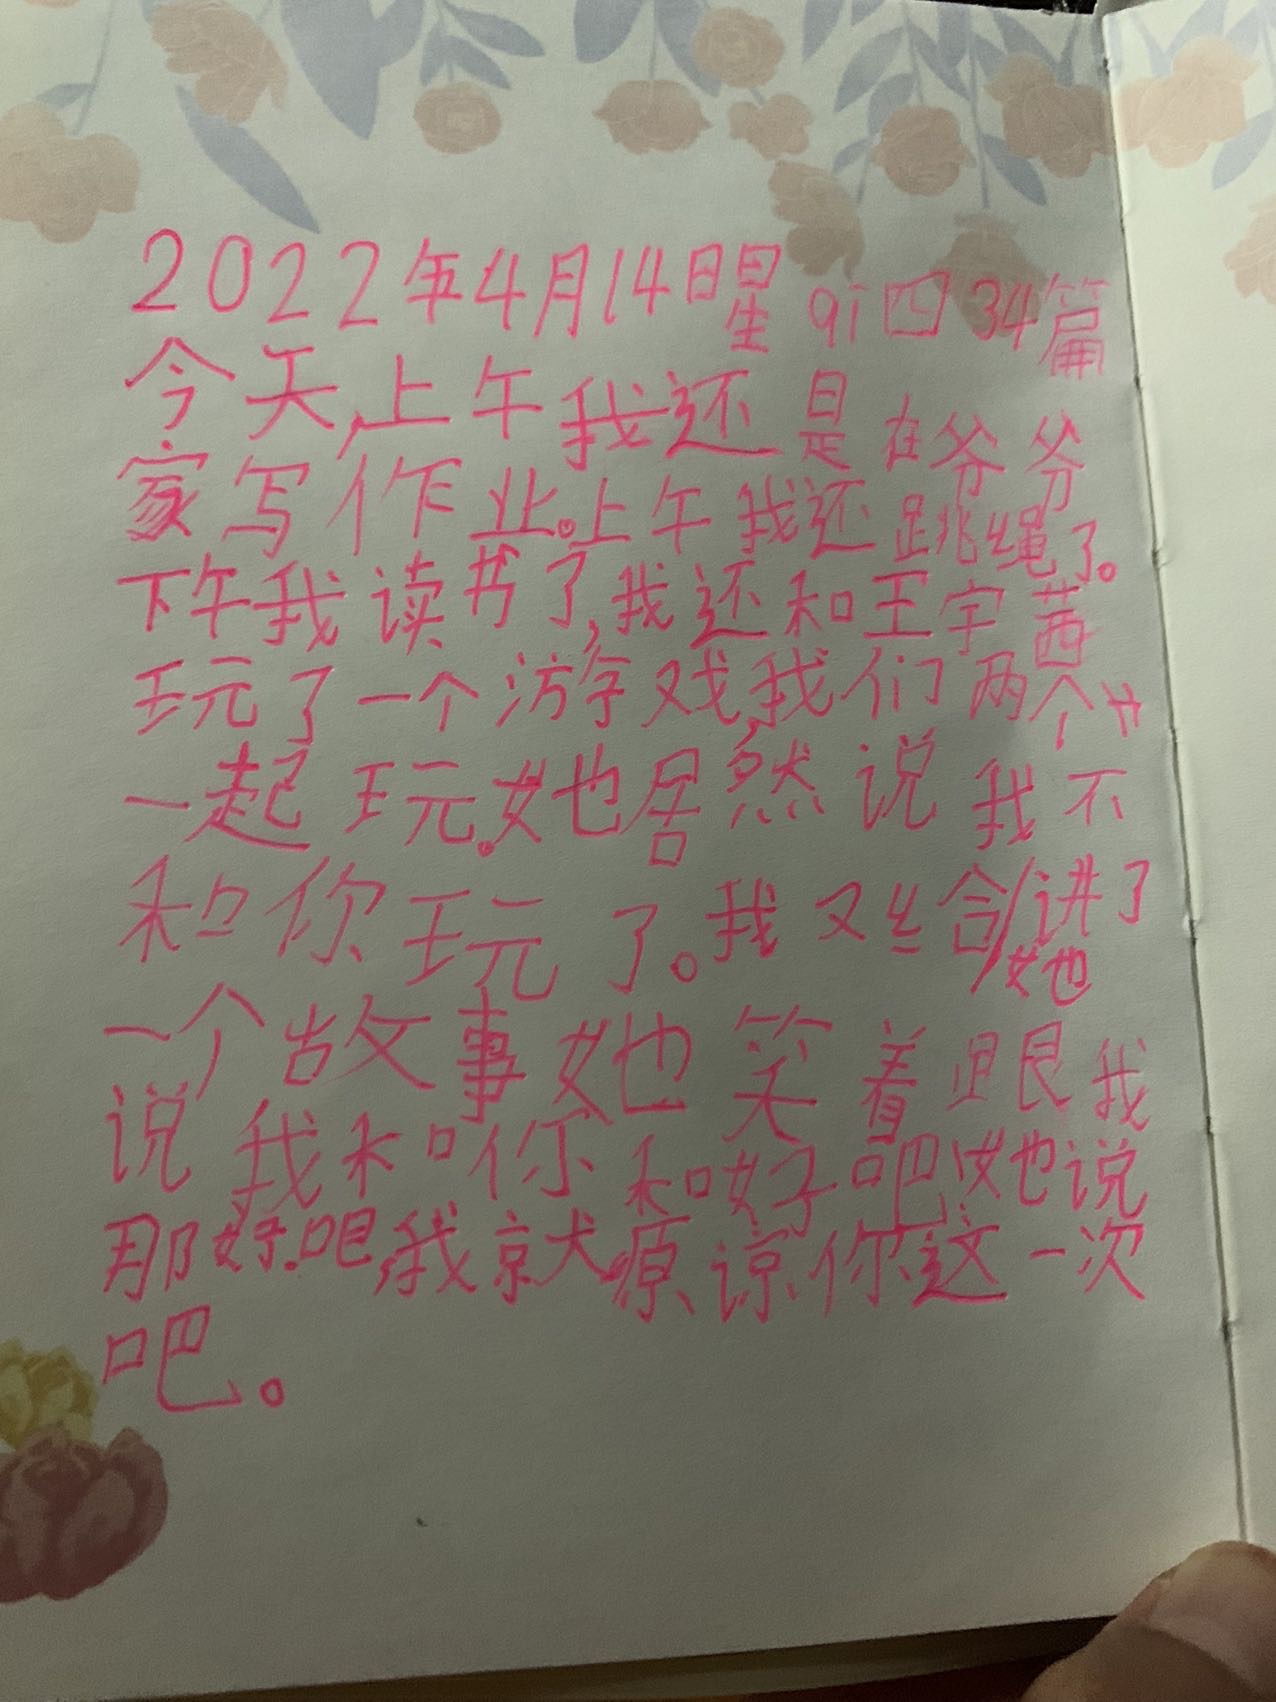 2022年4月14日星qi四34篇
今天,上午我还是在爷爷
家写作业。上午我还跳绳了。
下午我读书了,我还和王宇茜
玩了一个游戏,我们两个
一起玩。她居然说我不
和你玩了。我又给她讲了
一个故事她笑着跟我
说我和你和好吧,她说
那好吧,我就原谅你这一次
吧。